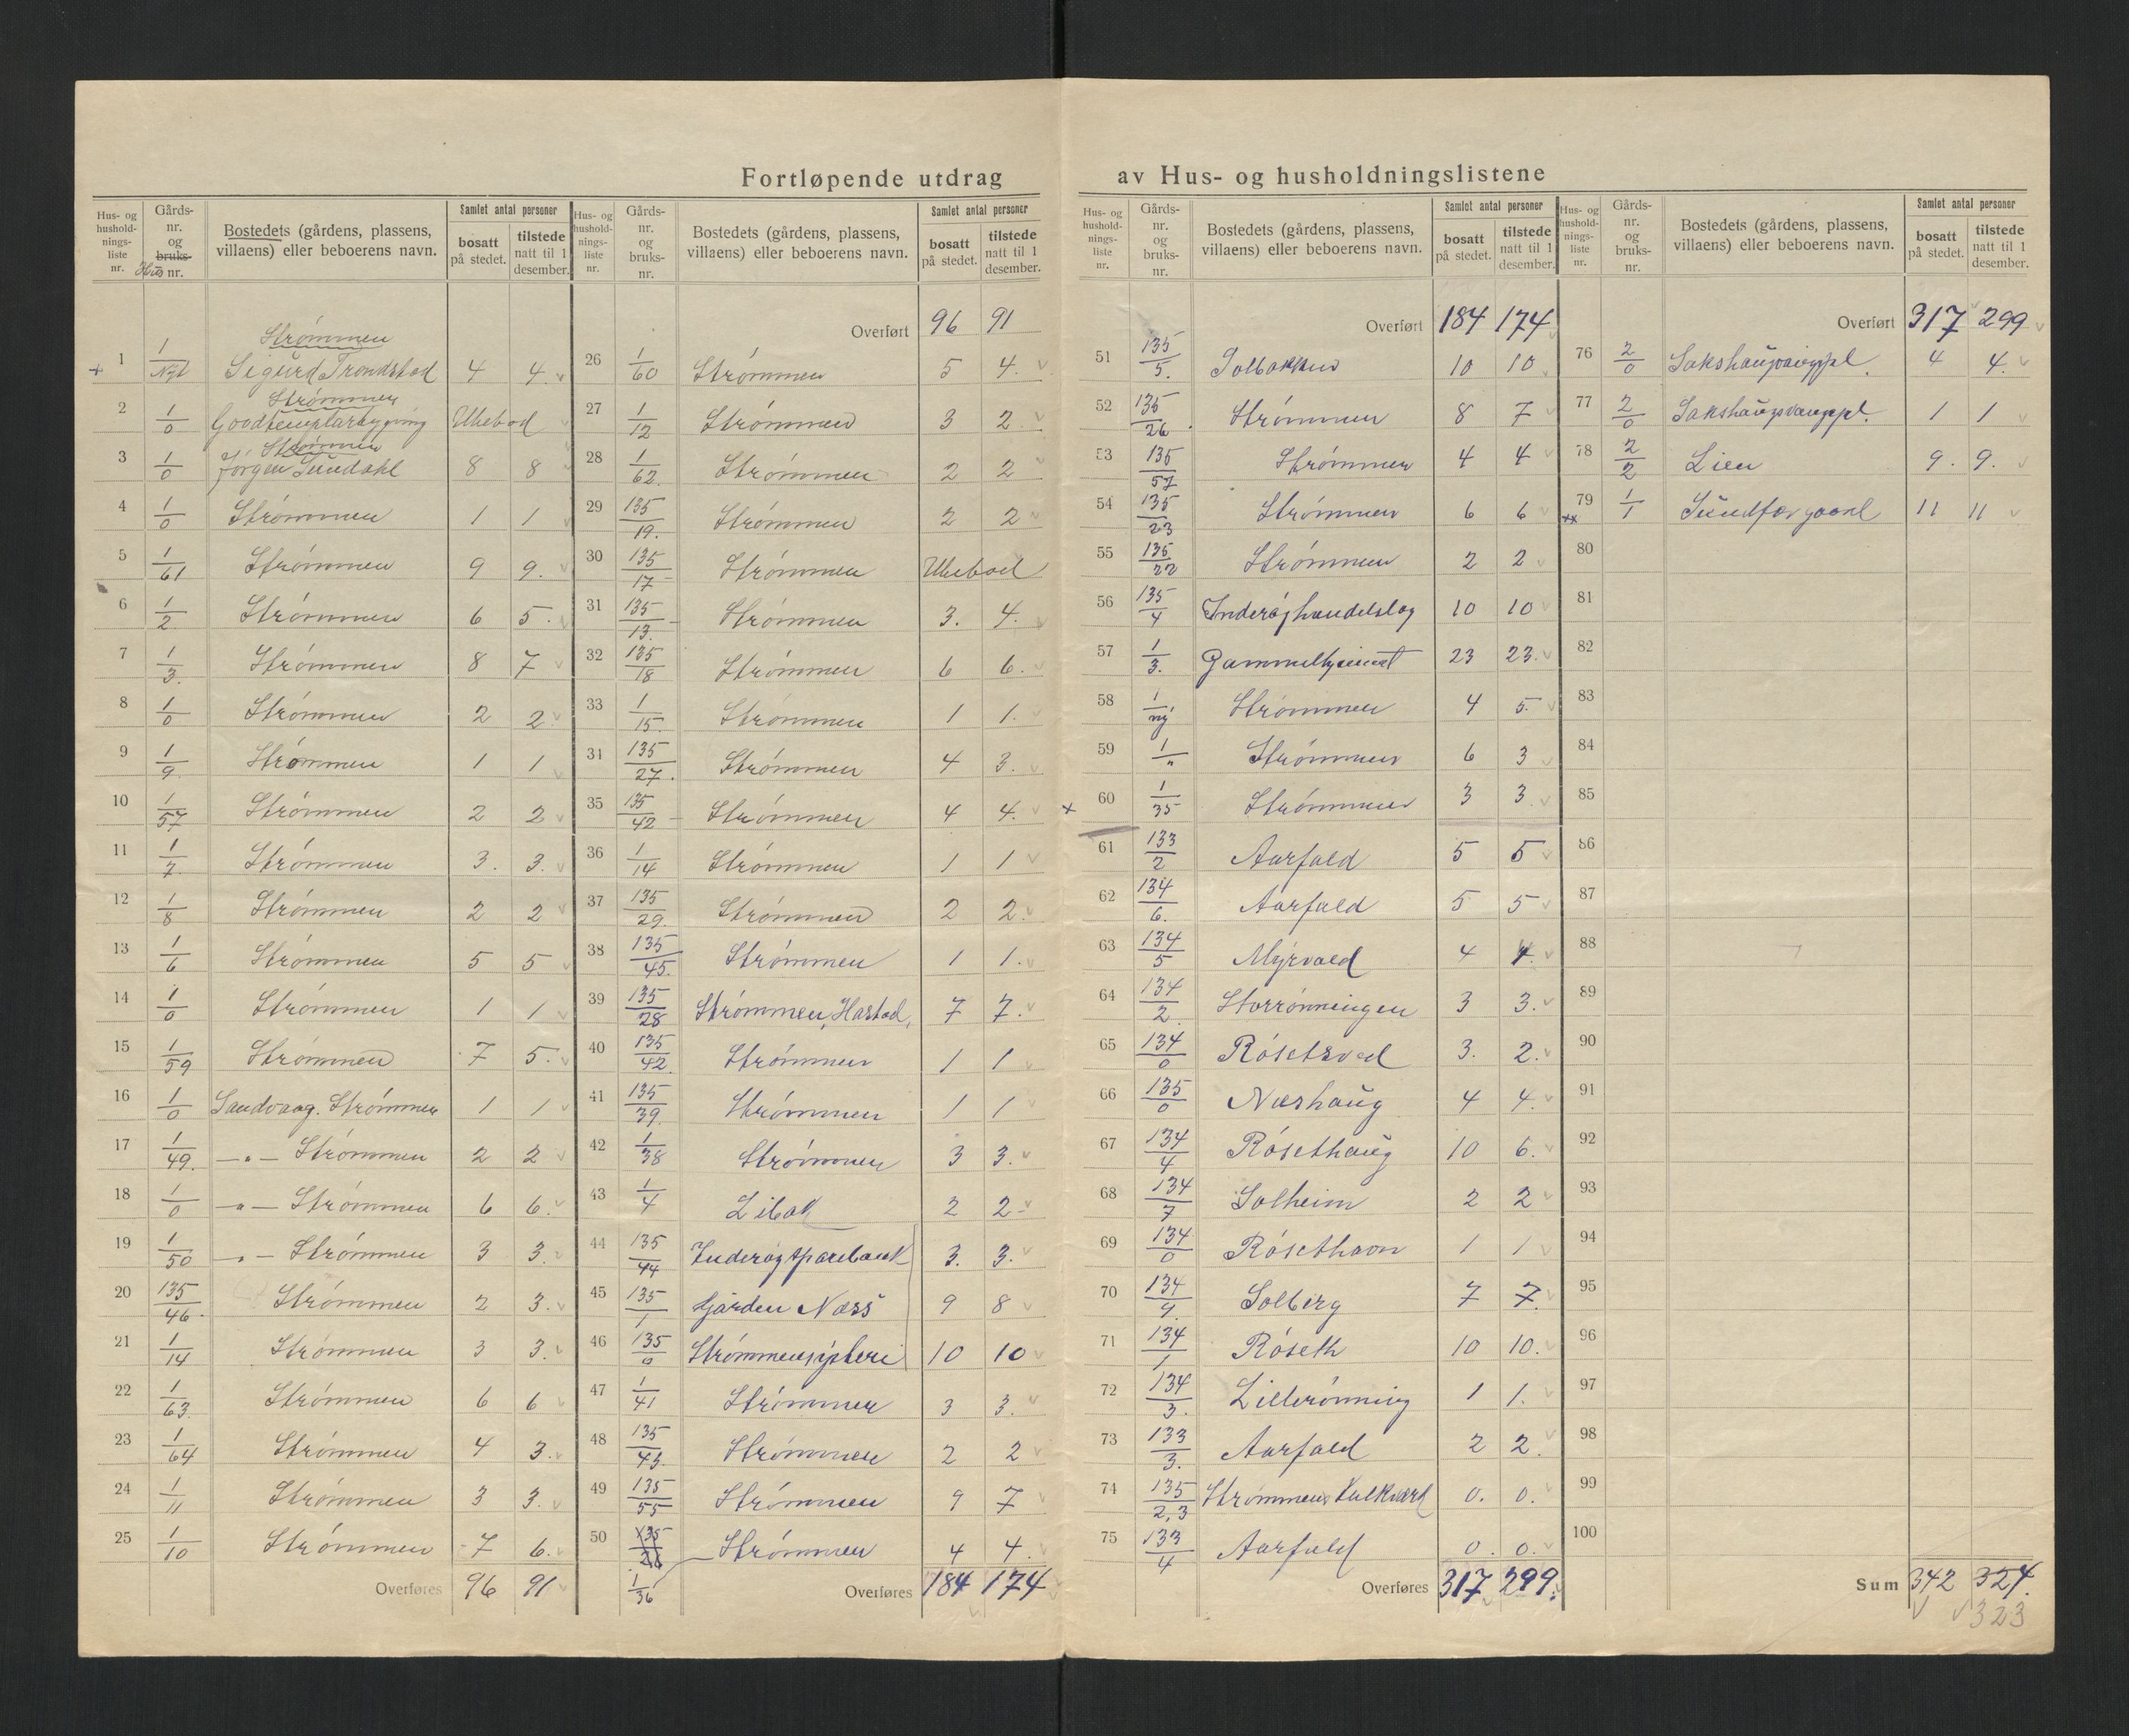 Fortløpende utdrag av Hus- og husholdningslistene
Hus- og hushold- nings- liste nr. Gårds- nr. og bruks- Hus nr. Bostedets (gårdens, plassens, villaens) eller beboerens navn. Samlet antal personer bosatt på stedet. tilstede natt til 1 desember.
1 1/Nyt Strømmen Sigurd Trondstad 4 4.
2 1/0 Strømmen Goodtemplarbygning Ubebod
3 1/0 Strømmen Jörgen Sundahl 8 8
4 1/0 Strømmen 1 1
5 1/61 Strømmen 9 9.
6 1/2 Strømmen 6 5.
7 1/3. Strømmen 8 7
8 1/0 Strømmen 2 2.
9 1/9. Strømmen 1 1
10 1/57 Strømmen 2 2
11 1/7. Strømmen 3. 3.
12 1/8 Strømmen 2 2
13 1/6 Strømmen 5 5
14 1/0 Strømmen 1 1
15 1/59 Strømmen 7 5.
16 1/0 Sandvaag. Strømmen 1 1
17 1/49. —„— Strømmen 2 2
18 1/0 —„— Strømmen 6 6.
19 1/50 —„— Strømmen 3 3.
20 135/46. Strømmen 2 3.
21 1/14 Strømmen 3 3.
22 1/63. Strømmen 6 6
23 1/64 Strømmen 4 3.
24 1/11 Strømmen 3 3.
25 1/10 Strømmen 7 6.
Overføres 96 91
Hus- og hushold- nings- liste nr. Gårds- nr. og bruks- nr. Bostedets (gårdens, plassens, villaens) eller beboerens navn. Samlet antal personer bosatt på stedet. tilstede natt til 1 desember.
Overført 96 91
26 1/60 Strømmen 5 4.
27 1/12 Strømmen 3 2.
28 1/62. Strømmen 2 2
29 135/19. Strømmen 2 2
30 135/17 Strømmen Ubebod
31 135/13. Strømmen 3. 4.
32 135/18 Strømmen 6 6.
33 1/15. Strømmen 1 1.
34 135/27. Strømmen 4 3.
35 135/42 Strømmen 4 4.
36 1/14 Strømmen 1 1
37 135/29. Strømmen 2 2.
38 135/45. Strømmen 1 1.
39 135/28 Strømmen, Hastad, 7 7.
40 135/42. Strømmen 1 1
41 135/39. Strømmen 1 1
42 1/38 Strømmen 3 3.
43 1/4 Libak 2 2
44 135/44 Inderøy sparebank 3. 3.
45 135/1 Gården Næss 9 8
46 135/0 Strømmens ysteri 10 10
47 1/41 Strømmen 3 3.
48 135/43. Strømmen 2 2
49 135/55 Strømmen 9 7
50 1/36 Strømmen 4 4.
Overføres 184 174
Hus- og hushold- nings- liste nr. Gårds- nr. og bruks- nr. Bostedets (gårdens, plassens, villaens) eller beboerens navn. Samlet antal personer bosatt på stedet. tilstede natt til 1 desember.
Overført 184 174
51 135/5. Solbakken 10 10
52 135/26. Strømmen 8 7
53 135/57 Strømmen 4 4
54 135/23 Strømmen 6 6
55 135/22 Strømmen 2 2
56 135/4 Inderøy handelslag 10 10
57 1/3. Gammelhjemmet 23 23.
58 1/ny Strømmen 4 5.
59 1/„ Strømmen 6 3
60 1/35 Strømmen 3 3.
61 133/2 Aarfald 5 5
62 134/6. Aarfald 5 5
63 134/5 Myrvold 4 4.
64 134/2. Storrønningen 3 3.
65 134/0 Røsetsvd 3. 2.
66 135/0 Næshaug 4 4.
67 134/4 Røsethaug 10 6.
68 134/7 Solheim 2 2
69 134/0 Røsethaon 1 1
70 134/9. Solberg 7 7.
71 134/1 Røseth 10 10.
72 134/3. Lillerønning 1 1.
73 133/3. Aarfald 2 2.
74 135/2,3 Strømmens Kalkværk 0. 0.
75 133/4 Aarfald 0. 0.
Overføres 317 299.
Hus- og hushold- nings- liste nr. Gårds- nr. og bruks- nr. Bostedets (gårdens, plassens, villaens) eller beboerens navn. Samlet antal personer bosatt på stedet. tilstede natt til 1 desember.
Overført 317 299
76 2/0 4 4.
77 2/0 Sakshaugvangpl. 1 1
78 2/2 Lien 9. 9.
79 1/1 Sundfærgaard 11 11
80
81
82
83
84
85
86
87
88
89
90
91
92
93
94
95
96
97
98
99
100
Sum 342 324.
323